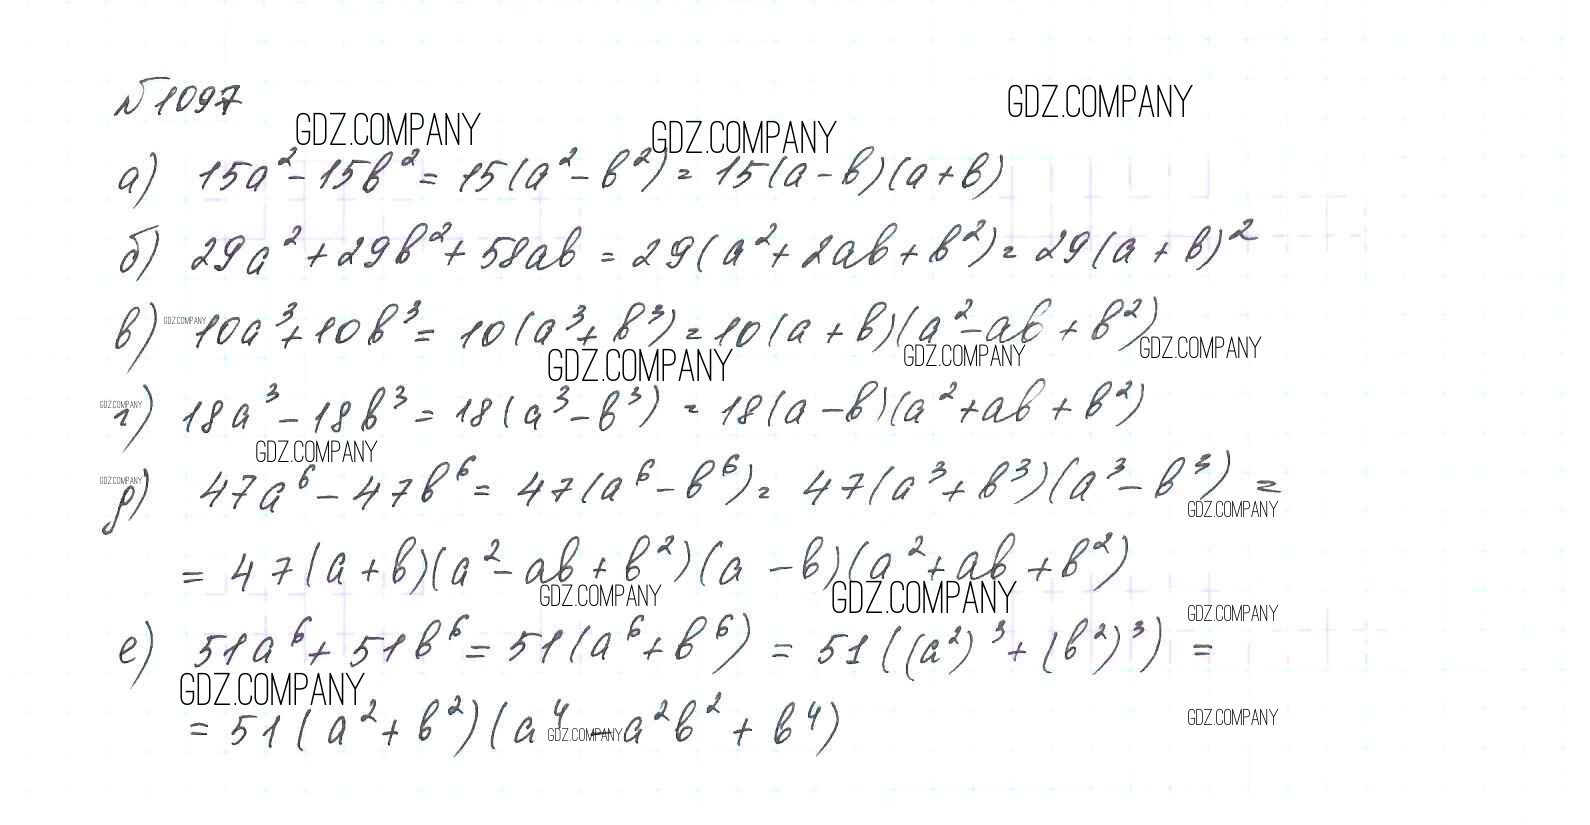 № 1097
GDZ.COMPANY GDZ.COMPANY GDZ.COMPANY
а) 15a² - 15b² = 15(a² - b²) = 15(a - b)(a + b)
б) 29a² + 29b² + 58ab = 29(a² + 2ab + b²) = 29(a + b)²
в) GDZ.COMPANY 10a³ + 10b³ = 10(a³ + b³) = 10(a + b)(a² - ab + b²)
GDZ.COMPANY GDZ.COMPANY GDZ.COMPANY
GDZ.COMPANY
г) 18a³ - 18b³ = 18(a³ - b³) = 18(a - b)(a² + ab + b²)
GDZ.COMPANY
GDZ.COMPANY
д) 47a⁶ - 47b⁶ = 47(a⁶ - b⁶) = 47(a³ + b³)(a³ - b³) =
GDZ.COMPANY
= 47(a + b)(a² - ab + b²)(a - b)(a² + ab + b²)
GDZ.COMPANY GDZ.COMPANY GDZ.COMPANY
е) 51a⁶ + 51b⁶ = 51(a⁶ + b⁶) = 51((a²)³ + (b²)³) =
GDZ.COMPANY
= 51(a² + b²)(a⁴ - a²b² + b⁴)
GDZ.COMPANY GDZ.COMPANY